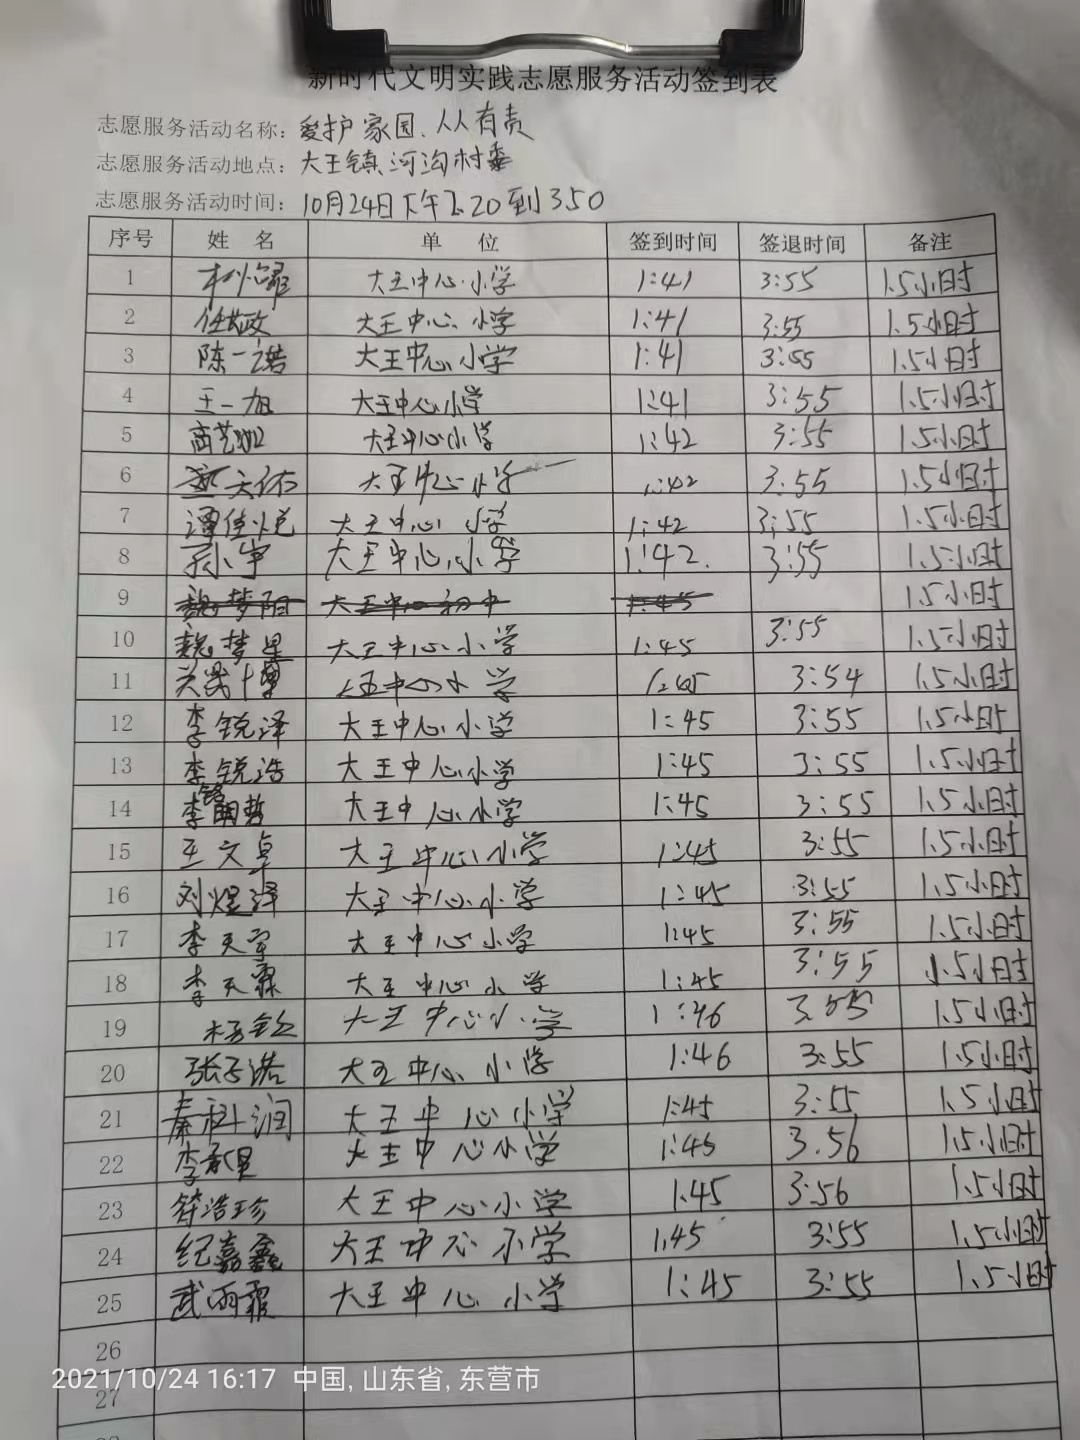 新时代文明实践志愿服务活动签到表
志愿服务活动名称：爱护家园、人人有责
志愿服务活动地点：大王镇河沟村委
志愿服务活动时间：10月24日下午2:20到3:50
序号 姓 名 单 位 签到时间 签退时间 备注
1 大王中心小学 1:41 3:55 1.5小时
2 大王中心小学 1:41 3:55 1.5小时
3 陈一诺 大王中心小学 1:41 3:55 1.5小时
4 王一旭 大王中心小学 1:41 3:55 1.5小时
5 大王中心小学 1:42 3:55 1.5小时
6 大王中心小学 1:42 3:55 1.5小时
7 谭佳悦 大王中心小学 1:42 3:55 1.5小时
8 孙小宇 大王中心小学 1:42. 3:55 1.5小时
9 魏梦阳 大王中心初中 1:45 1.5小时
10 魏梦星 大王中心小学 1:45 3:55 1.5小时
11 大王中心小学 3:54 1.5小时
12 李锐泽 大王中心小学 1:45 3:55 1.5小时
13 李锐浩 大王中心小学 1:45 3:55 1.5小时
14 大王中心小学 1:45 3:55 1.5小时
15 王文卓 大王中心小学 1:45 3:55 1.5小时
16 刘煜泽 大王中心小学 1:45 3:55 1.5小时
17 大王中心小学 1:45 3:55 1.5小时
18 李天霖 大王中心小学 1:45 3:55 1.5小时
19 大王中心小学 1:46 3:55 1.5小时
20 张子诺 大王中心小学 1:46 3:55 1.5小时
21 秦科润 大王中心小学 1:45 3:55 1.5小时
22 大王中心小学 1:45 3.56 1.5小时
23 大王中心小学 1.45 3:56 1.5小时
24 纪嘉鑫 大王中心小学 1.45 3:55 1.5小时
25 武雨霏 大王中心小学 1:45 3:55 1.5小时
26
2021/10/24 16:17 中国, 山东省, 东营市
27